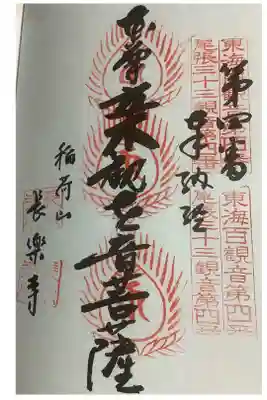 東海百観音第四番
尾張三十三観音第四番
東海百観音第四番
尾張三十三観音第四番
第四番
奉納経
観世音菩薩
稲荷山
長樂寺